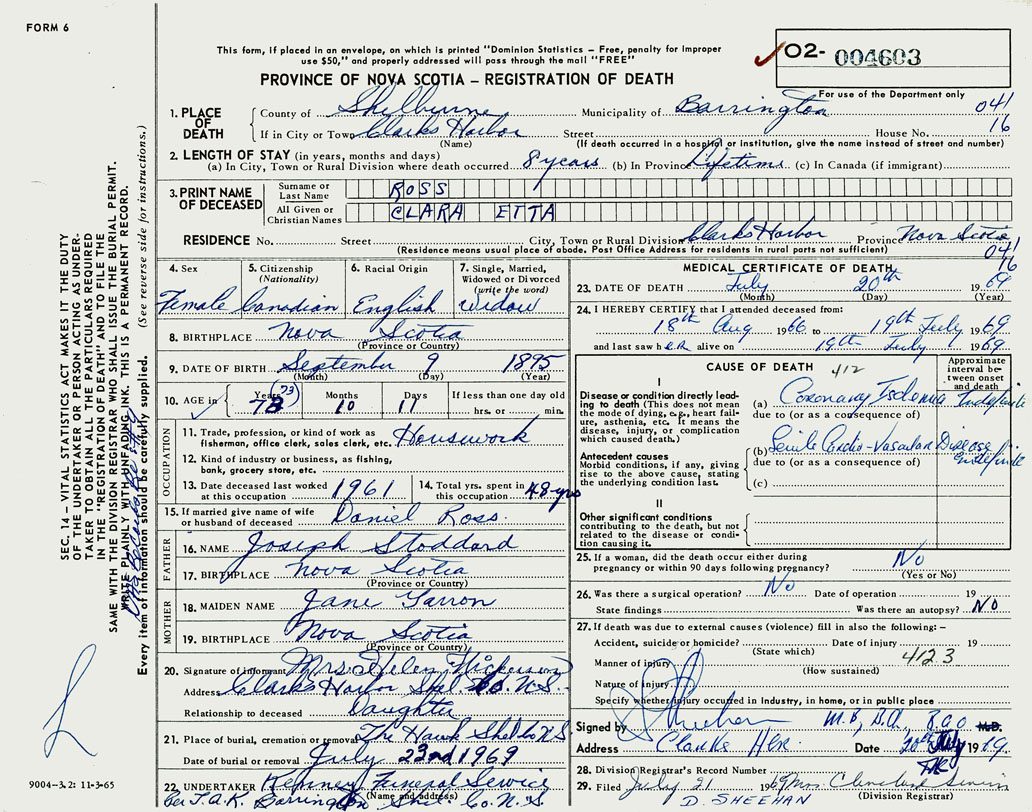 FORM 6
This form, if placed in an envelope, on which is printed "Dominion Statistics – Free, penalty for improper
use $50," and properly addressed will pass through the mail "FREE"
PROVINCE OF NOVA SCOTIA – REGISTRATION OF DEATH
✓ O2- 004603
For use of the Department only
041
16
1. PLACE OF DEATH
County of Shelburne Municipality of Barrington
If in City or Town Clarks Harbor Street House No.
(Name) (If death occurred in a hospital or institution, give the name instead of street and number)
2. LENGTH OF STAY (in years, months and days)
(a) In City, Town or Rural Division where death occurred 8 years (b) In Province Lifetime (c) In Canada (if immigrant)
3. PRINT NAME OF DECEASED
Surname or Last Name ROSS
All Given or Christian Names CLARA ETTA
RESIDENCE No. Street City, Town or Rural Division Clarks Harbor Province Nova Scotia
(Residence means usual place of abode. Post Office Address for residents in rural parts not sufficient)
041
16
4. Sex Female
5. Citizenship (Nationality) Canadian
6. Racial Origin English
7. Single, Married, Widowed or Divorced (write the word) Widow
8. BIRTHPLACE Nova Scotia
(Province or Country)
9. DATE OF BIRTH September 9 1895
(Month) (Day) (Year)
10. AGE in Years 73 (73) Months 10 Days 11 If less than one day old
hrs. or min.
OCCUPATION
11. Trade, profession, or kind of work as
fisherman, office clerk, sales clerk, etc. Housework
12. Kind of industry or business, as fishing,
bank, grocery store, etc.
13. Date deceased last worked
at this occupation 1961
14. Total yrs. spent in
this occupation 48 yrs
15. If married give name of wife
or husband of deceased Daniel Ross
FATHER
16. NAME Joseph Stoddard
17. BIRTHPLACE Nova Scotia
(Province or Country)
MOTHER
18. MAIDEN NAME Jane Garron
19. BIRTHPLACE Nova Scotia
(Province or Country)
20. Signature of informant Mrs. Helen Nickerson
Address Clarks Harbor Shel Co. N.S.
Relationship to deceased Daughter
21. Place of burial, cremation or removal The Hawk Shel Co N S
Date of burial or removal July 23rd 1969
22. UNDERTAKER Kenney Funeral Service
(Name and address)
per J.A.K. Barrington Shel Co. N.S.
MEDICAL CERTIFICATE OF DEATH
23. DATE OF DEATH July 20th 1969
(Month) (Day) (Year)
24. I HEREBY CERTIFY that I attended deceased from:
18th Aug 1966 to 19th July 1969
and last saw her alive on 19th July 1969
CAUSE OF DEATH 412
Approximate interval between onset and death
I
Disease or condition directly leading to death (This does not mean
the mode of dying, e.g., heart failure, asthenia, etc. It means the
disease, injury, or complication
which caused death.)
(a) Coronary Ischemia Indefinite
due to (or as a consequence of)
Antecedent causes
Morbid conditions, if any, giving
rise to the above cause, stating
the underlying condition last.
(b) Senile Cardio-Vascular Disease Indefinite
due to (or as a consequence of)
(c)
II
Other significant conditions
contributing to the death, but not
related to the disease or condition causing it.
25. If a woman, did the death occur either during
pregnancy or within 90 days following pregnancy? No
(Yes or No)
26. Was there a surgical operation? No Date of operation 19
State findings Was there an autopsy? No
27. If death was due to external causes (violence) fill in also the following:–
Accident, suicide or homicide? Date of injury 19
(State which)
412 3
Manner of injury
(How sustained)
Nature of injury
Specify whether injury occurred in Industry, in home, or in public place
Signed by M.B, B.A, B.A.O M.D.
Address Clarks Hbr. Date 20th July 1969.
28. Division Registrar's Record Number
29. Filed July 21 1969 Mrs.
(Division Registrar)
D. SHEEHAN
SEC. 14 – VITAL STATISTICS ACT MAKES IT THE DUTY
OF THE UNDERTAKER OR PERSON ACTING AS UNDERTAKER TO OBTAIN ALL THE PARTICULARS REQUIRED
IN THE "REGISTRATION OF DEATH" AND TO FILE THE
SAME WITH THE DIVISION REGISTRAR WHO SHALL ISSUE THE BURIAL PERMIT.
WRITE PLAINLY WITH UNFADING INK. THIS IS A PERMANENT RECORD.
Every item of information should be carefully supplied. (See reverse side for instructions.)
9004–3.2: 11-3-65